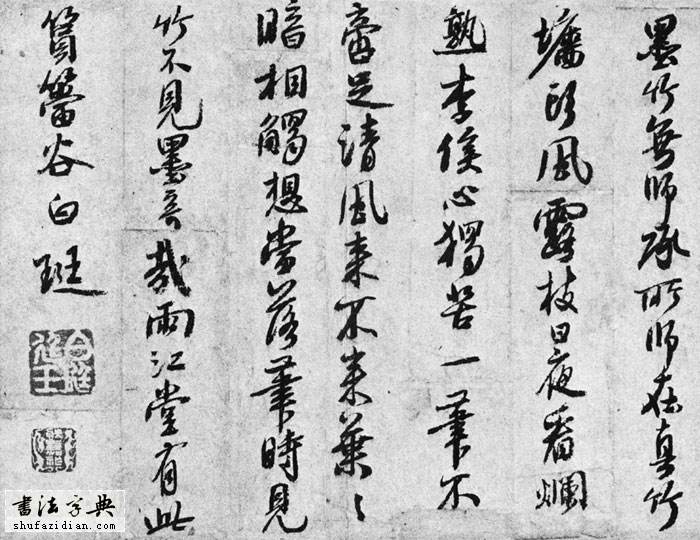 墨竹無師承所師在真竹
墻頭風露枝日夜看爛
熟李侯心獨苦一筆不
啻足清風來不來葉〻
暗相觸想當落筆時見
竹不見墨奇哉兩江堂有此
篔簹谷白珽
书法字典
shufazidian.com